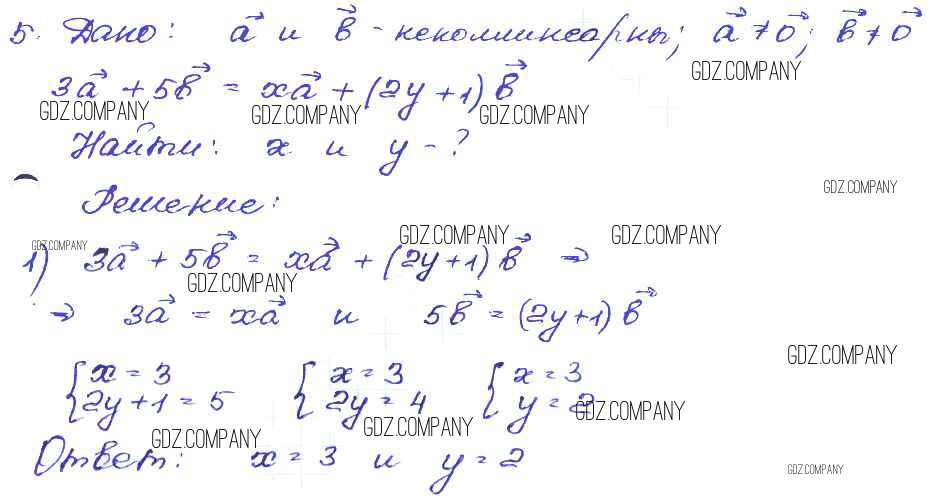 5. Дано: a⃗ и b⃗ - неколлинеарны; a⃗ ≠ 0⃗; b⃗ ≠ 0⃗
GDZ.COMPANY
3a⃗ + 5b⃗ = xa⃗ + (2y + 1) b⃗
GDZ.COMPANY GDZ.COMPANY GDZ.COMPANY
Найти: x и y - ?
GDZ.COMPANY
Решение:
GDZ.COMPANY GDZ.COMPANY GDZ.COMPANY
1) 3a⃗ + 5b⃗ = xa⃗ + (2y + 1) b⃗ ⇒
GDZ.COMPANY
⇒ 3a⃗ = xa⃗ и 5b⃗ = (2y + 1) b⃗
GDZ.COMPANY
{ x = 3 { x = 3 { x = 3
{ 2y + 1 = 5 { 2y = 4 { y = 2
GDZ.COMPANY
GDZ.COMPANY GDZ.COMPANY
Ответ: x = 3 и y = 2
GDZ.COMPANY